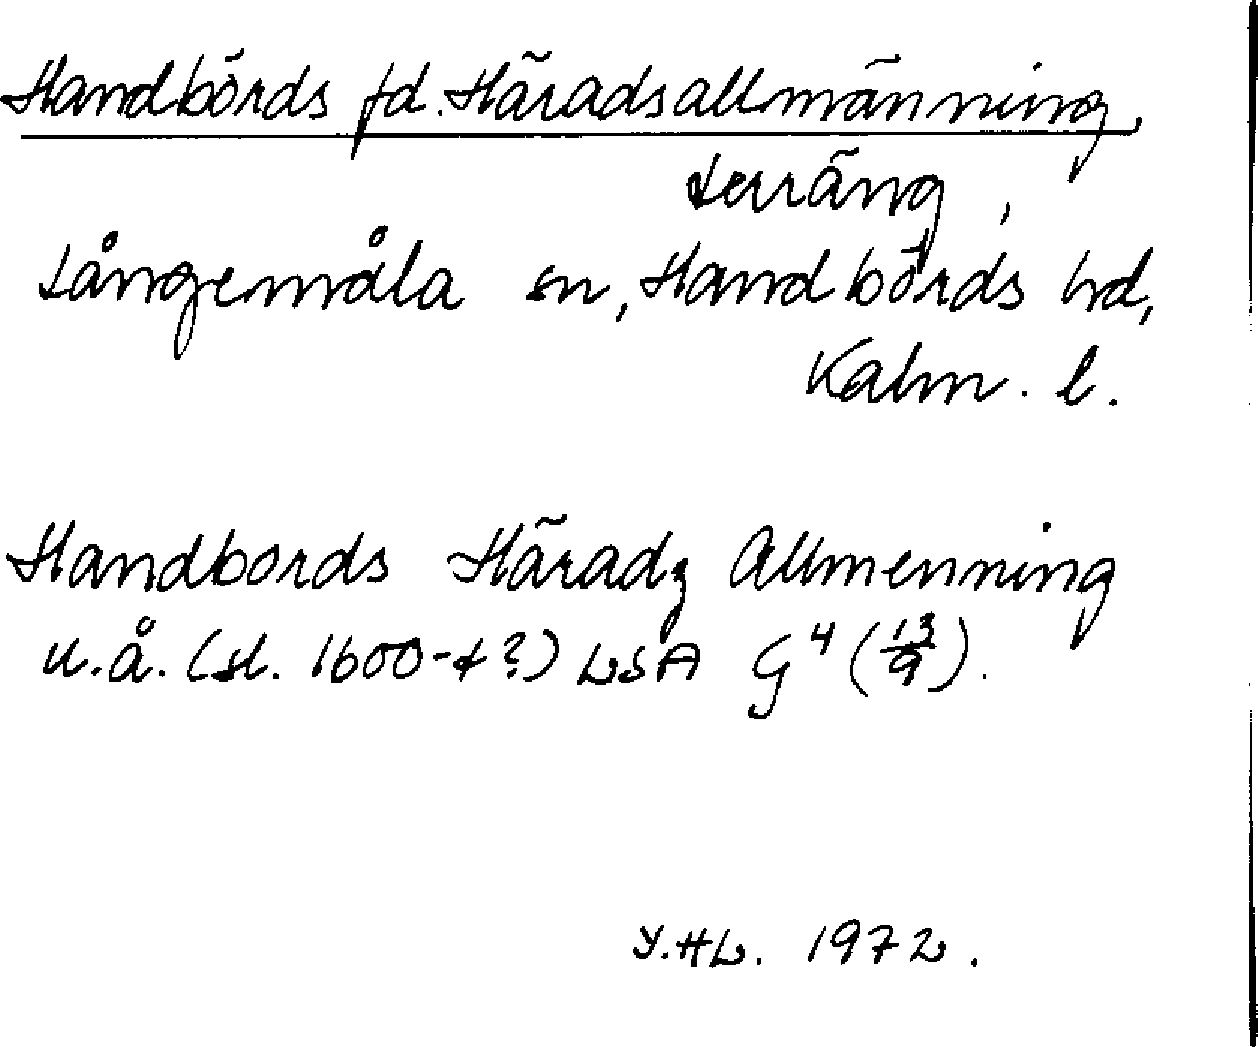 Handbörds fd. Häradsallmänning,
terräng,
Långemåla sn, Handbörds hd,
Kalm. l.
Handbords Häradz Allmenning
u.å. (sl. 1600-t?) LSA G⁴ (13/9).
Y.HL. 1972.